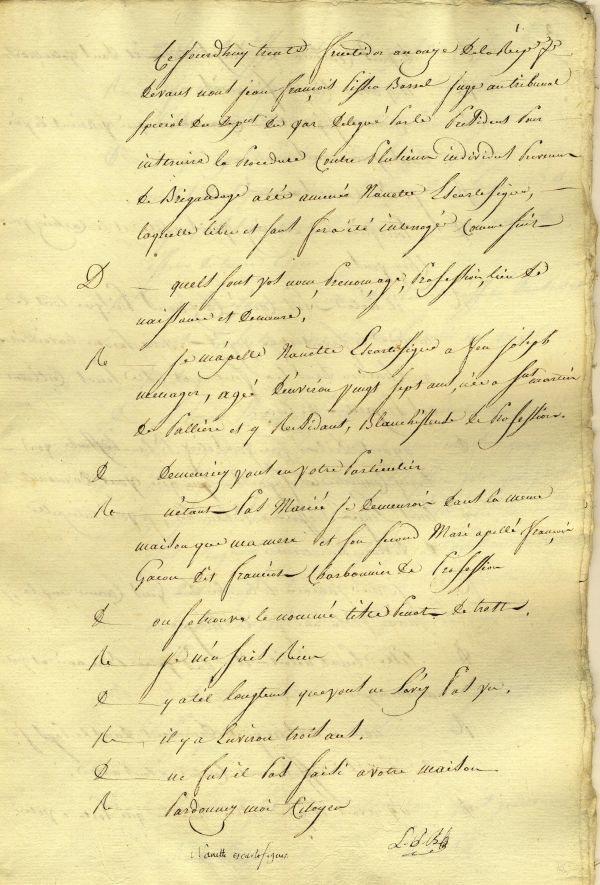 1.
Cejourdhuy trente fructidor an onze De la Rep. f.se
Devant nous jean françois Piston Bassel juge au tribunal
special du Depart. du Var Delegué Par le President Pour
instruire la Procedure Contre Plusieurs individus Prevenus
de Brigandage a été amenée Nanette Escartefigue,
laquelle libre et sans fers a été interrogé Comme suit
D — quels sont vos nom, Prenom, age, Profession, lieu de
naissance et Demeure,
R je m'apelle Nanette Escartefigue a feu joseph
menager, agée D'environ vingt sept ans, née a St martin
de Pallière et y Residant, Blanchisseuse de Profession.
D Demeuriez vous en votre Particulier
R n'etant Pas Mariée je Demeurois Dans la meme
maison que ma mere et son second Mari apellé françois
Gacon dit francois Charbonnier de Profession
D ou se trouve le nommé de
R je n'en sait Rien
D y a t'il longtems que vous ne l'avez Pas vu,
R il y a Environ trois ans.
D ne fut il Pas saisi a votre maison
R Pardonnez moi Citoyen
Nanette escartefigue